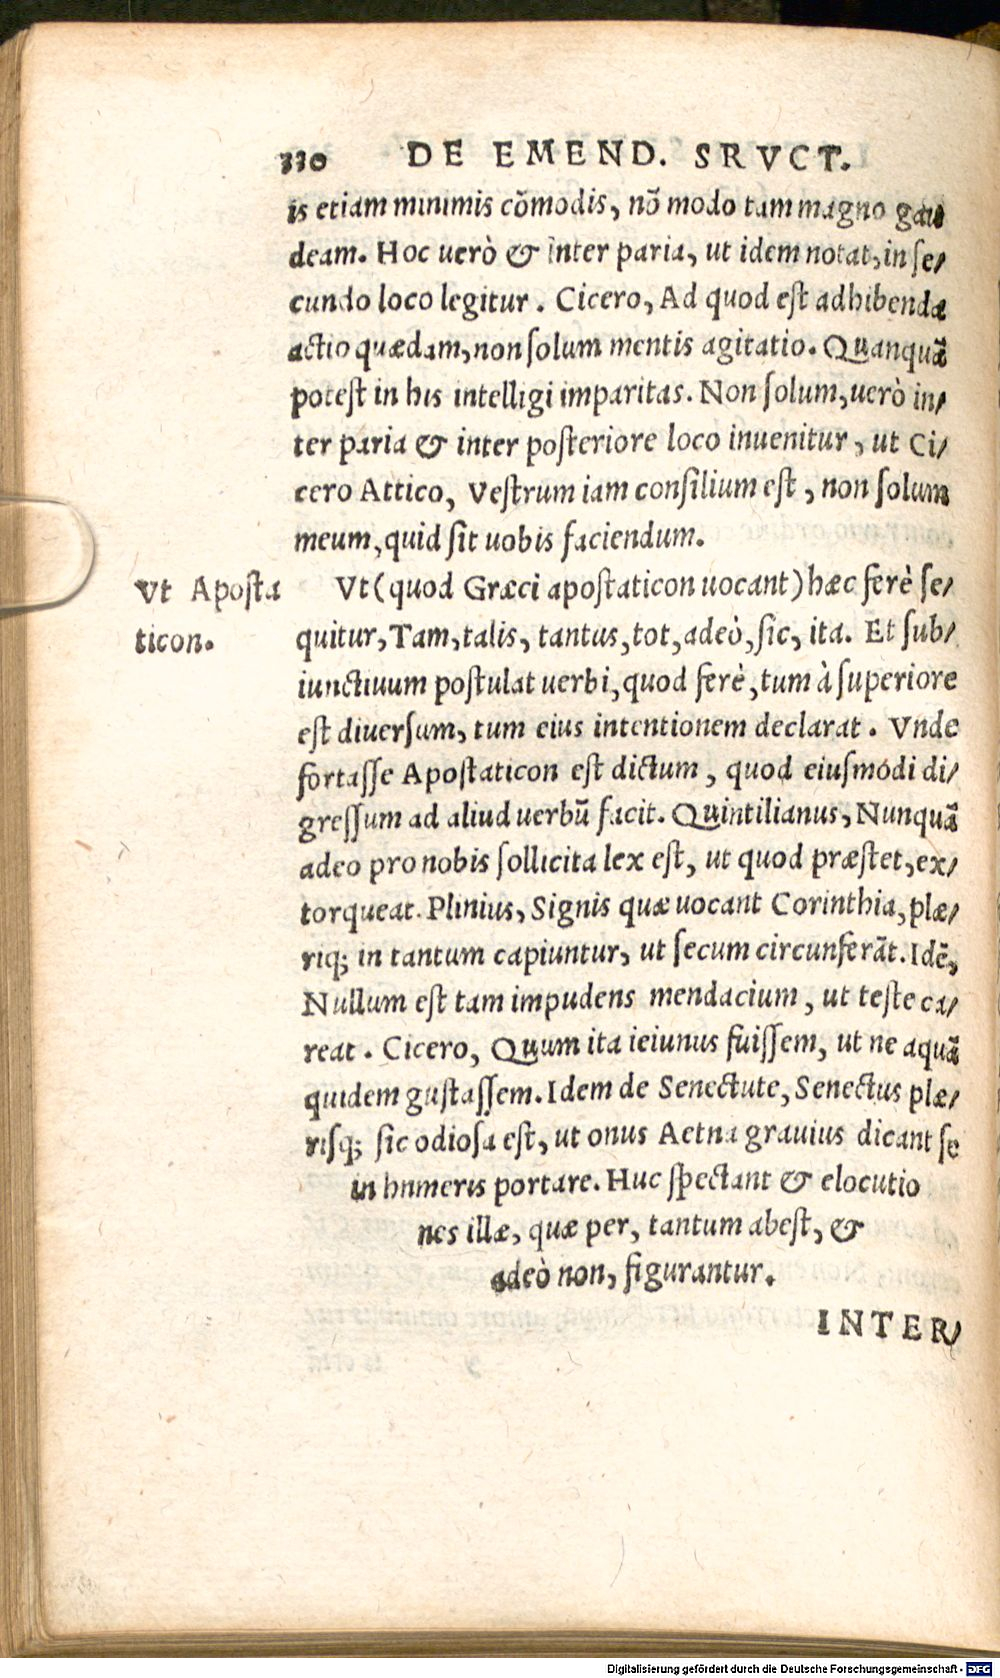 330 DE EMEND. SRVCT.
is etiam minimis cōmodis, nō modo tam magno gau
deam. Hoc uerò & inter paria, ut idem notat, in se/
cundo loco legitur. Cicero, Ad quod est adhibendæ
actio quædam, non solum mentis agitatio. Quanquā
potest in his intelligi imparitas. Non solum, uerò in/
ter paria & inter posteriore loco inuenitur, ut Ci/
cero Attico, Vestrum iam consilium est, non solum
meum, quid sit uobis faciendum.
Vt Aposta
ticon.
Vt (quod Græci apostaticon uocant) hæc ferè se/
quitur, Tam, talis, tantus, tot, adeò, sic, ita. Et sub/
iunctiuum postulat uerbi, quod ferè, tum à superiore
est diuersum, tum eius intentionem declarat. Vnde
fortasse Apostaticon est dictum, quod eiusmodi di/
gressum ad aliud uerbū facit. Quintilianus, Nunquā
adeo pro nobis sollicita lex est, ut quod præstet, ex/
torqueat. Plinius, Signis quæ uocant Corinthia, plæ/
riq; in tantum capiuntur, ut secum circunferāt. Idē,
Nullum est tam impudens mendacium, ut teste ca/
reat. Cicero, Quum ita ieiunus fuissem, ut ne aquā
quidem gustassem. Idem de Senectute, Senectus plæ/
risq; sic odiosa est, ut onus Aetna grauius dicant se
in hnmeris portare. Huc spectant & elocutio
nes illæ, quæ per, tantum abest, &
adeò non, figurantur.
INTER/
Digitalisierung gefördert durch die Deutsche Forschungsgemeinschaft - DFG